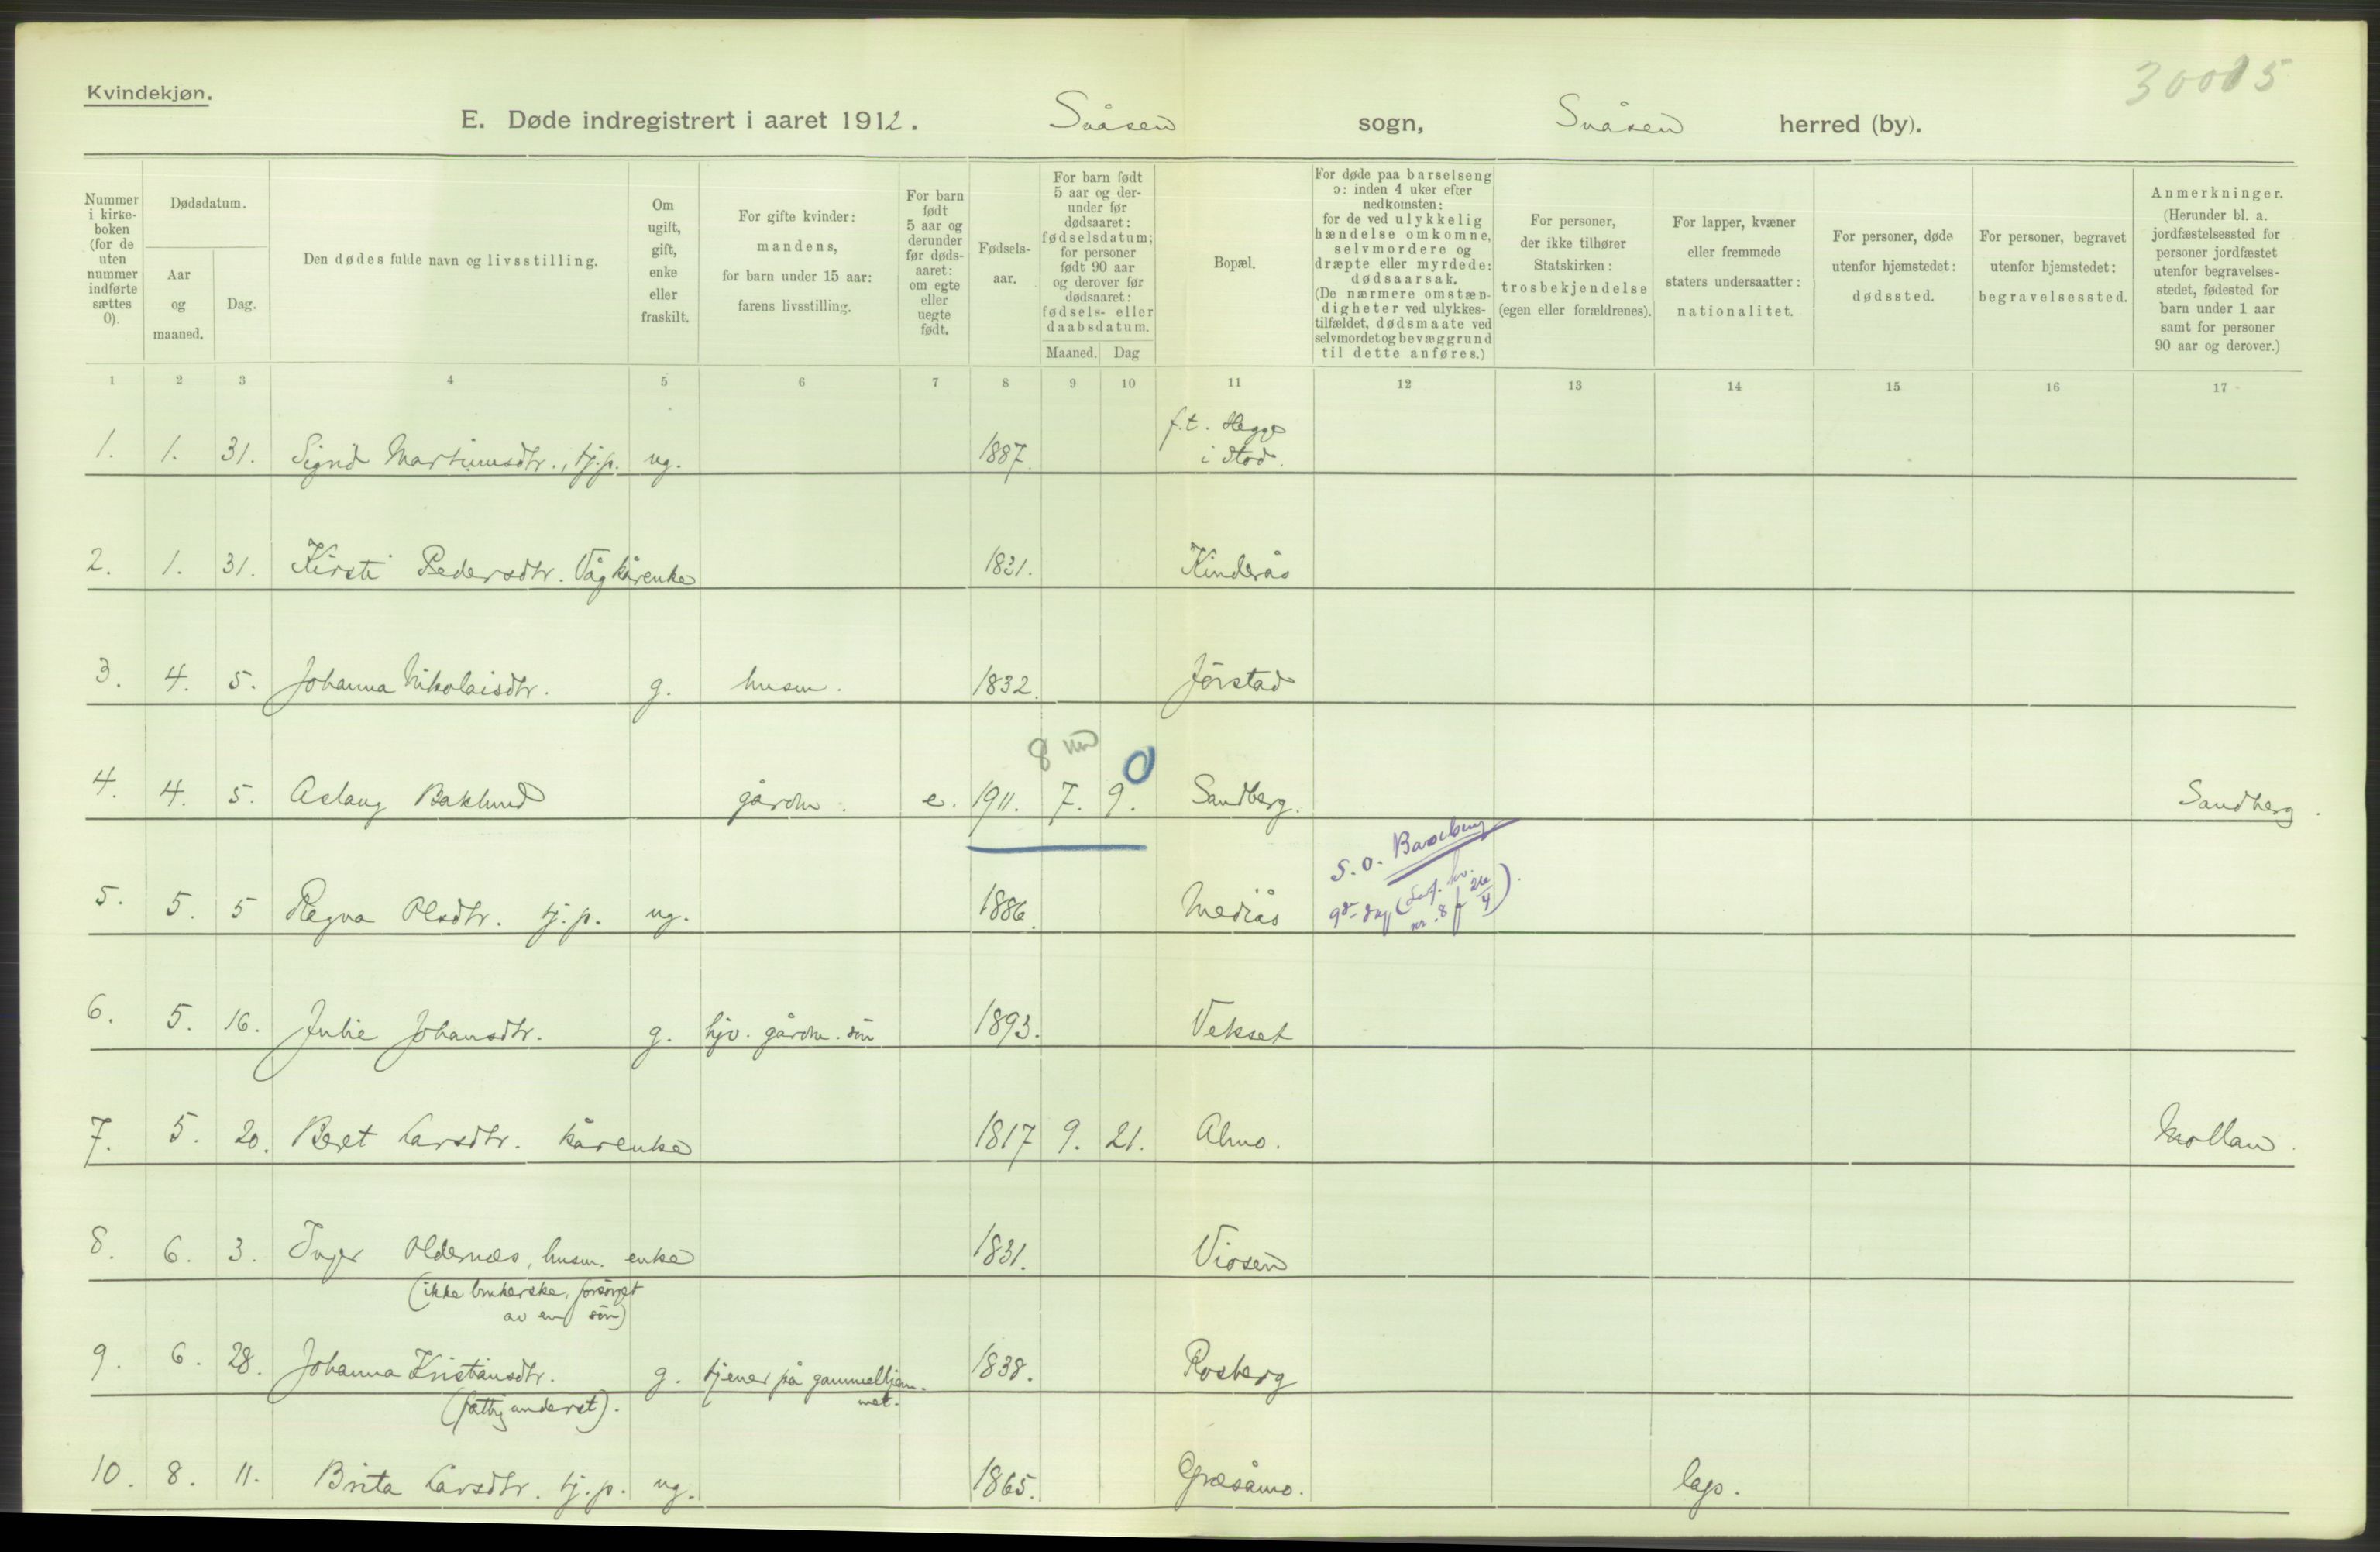 Kvindekjøn.
30015
E. Døde indregistrert i aaret 1912. Snåsen sogn, Snåsen herred (by).
Nummer i kirke-boken (for de uten nummer indførte sættes 0).
Dødsdatum.
Aar og maaned.
Dag.
Den dødes fulde navn og livsstilling.
Om ugift, gift, enke eller fraskilt.
For gifte kvinder: mandens, for barn under 15 aar: farens livsstilling.
For barn født 5 aar og derunder før døds-aaret: om egte eller uegte født.
Fødsels-aar.
For barn født 5 aar og der-under før dødsaaret: fødselsdatum; for personer født 90 aar og derover før dødsaaret: fødsels- eller daabsdatum.
Maaned. Dag
Bopæl.
For døde paa barselseng ɔ: inden 4 uker efter nedkomsten: for de ved ulykkelig hændelse omkomne, selvmordere og dræpte eller myrdede: dødsaarsak. (De nærmere omstæn-digheter ved ulykkes-tilfældet, dødsmaate ved selvmordet og bevæggrund til dette anføres.)
For personer, der ikke tilhører Statskirken: trosbekjendelse (egen eller forældrenes).
For lapper, kvæner eller fremmede staters undersaatter: nationalitet.
For personer, døde utenfor hjemstedet: dødssted.
For personer, begravet utenfor hjemstedet: begravelsessted.
Anmerkninger. (Herunder bl. a. jordfæstelsessted for personer jordfæstet utenfor begravelses-stedet, fødested for barn under 1 aar samt for personer 90 aar og derover.)
1 2 3 4 5 6 7 8 9 10 11 12 13 14 15 16 17
f.t. Hegge
1. 1. 31. Sigrid Martinusdtr., tj.p. ug. 1887. i Stod.
2. 1. 31. Kirsti Pedersdtr. Våg kårenke 1831. Kinderås
3. 4. 5. Johanna Nikolaisdtr. g. husm. 1832. Jörstad
8 md 0
4. 4. 5. Aslaug Baklund gårdm. e. 1911. 7. 9. Sandberg. Sandberg.
S.O. Barselseng
5. 5. 5 Regna Olsdtr. tj.p. ug. 1886. Mediås 9de dag (Lev. kv. nr. 8 f 26/4).
6. 5. 16. Julie Johansdtr. g. hjv. gårdm. sön 1893. Vekset
7. 5. 20. Beret Larsdtr. kårenke 1817 9. 21. Almo. Mollan.
8. 6. 3. Inger Oldernæs, husm. enke 1831. Viosen
(ikke brukerske, forsörget
av en sön)
9. 6. 28. Johanna Kristiansdtr. g. tjener på gammelhjem-met. 1838. Rosberg
(fattigunderst).
10. 8. 11. Brita Larsdtr. tj.p. ug. 1865. Græsåmo. lap.